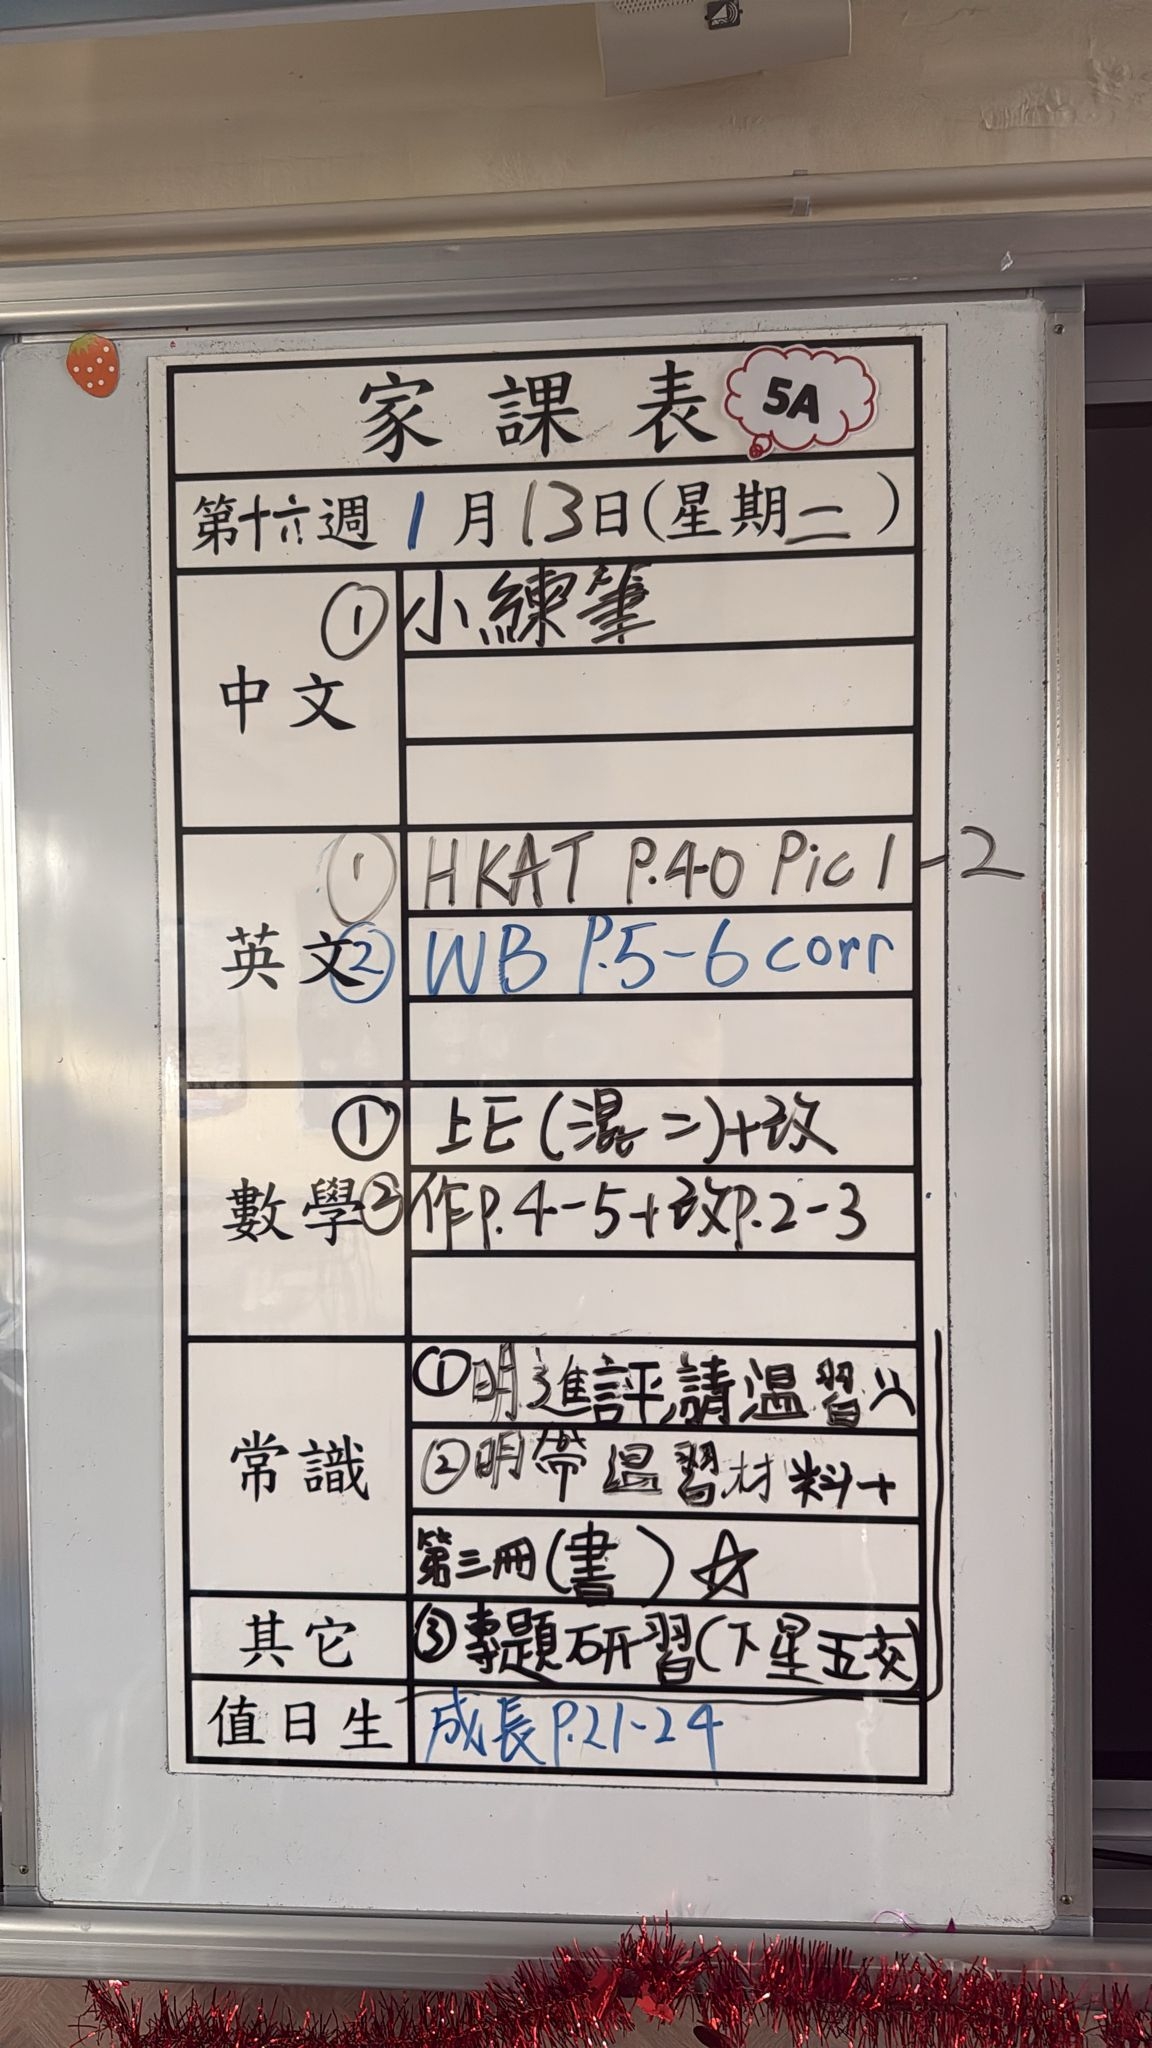 家課表 5A
第十六週 1月13日(星期二)
中文
① 小練筆
英文
① HKAT P.40 Pic 1-2
② WB P.5-6 corr
數學
① 上E(混二)+改
② 作P.4-5+改P.2-3
常識
①明進評,請溫習
②明帶溫習材料+
第三冊(書)☆
其它
③專題研習(下星五交)
值日生
成長P.21-24